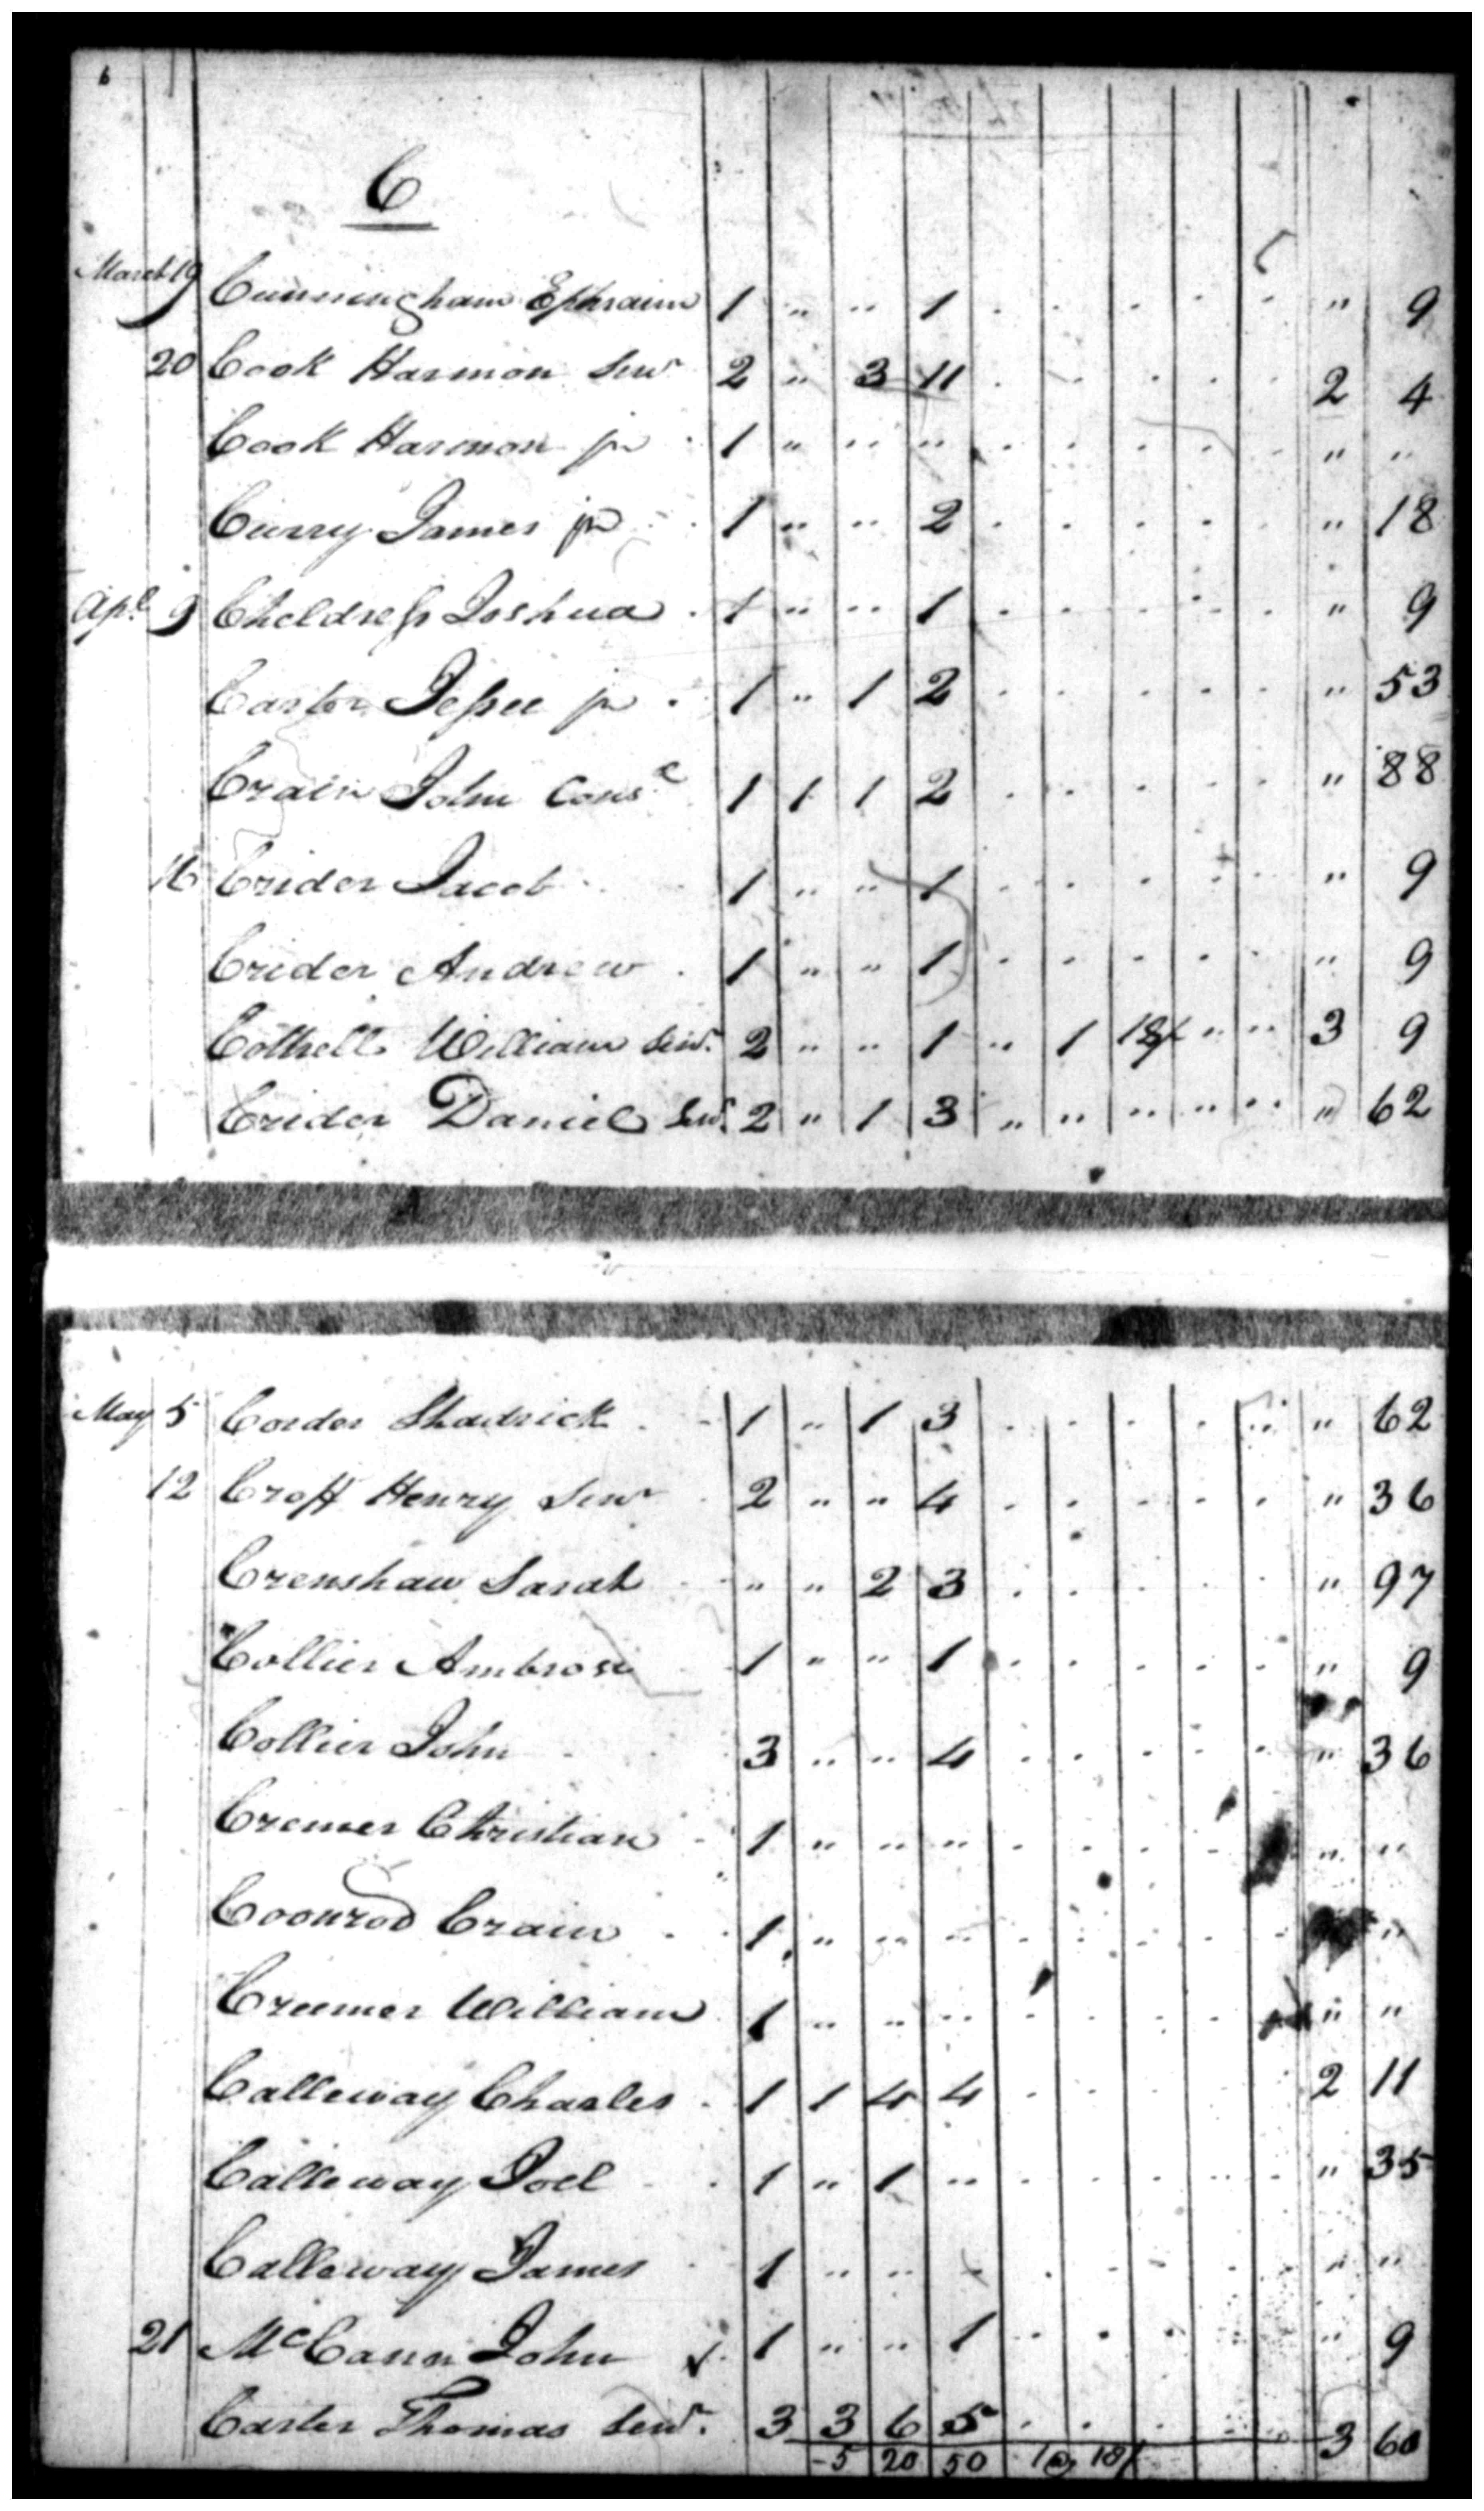 6
C
March 19 Cunningham Ephraim 1 " " 1 . . . . . " 9
20 Cook Harmon Senr 2 " 3 11 . . . . . 2 4
Cook Harmon jr 1 " " " . . . . . " "
Curry James jr 1 " " 2 . . . . . " 18
Apl 9 Cheldress Joshua 1 " " 1 . . . . . " 9
Carter Jessee jr 1 " 1 2 . . . . . " 53
Crain John Cons.e 1 1 1 2 . . . . . " 88
16 Crider Jacob 1 " " 1 . . . . . " 9
Crider Andrew 1 " " 1 . . . . . " 9
William Senr. 2 " " 1 " 1 18/ " " 3 9
Crider Daniel Senr. 2 " 1 3 " " " " " " 62
May 5 Corder Shadrick 1 " 1 3 . . . . . " 62
12 Croff Henry Senr 2 " " 4 . . . . . " 36
Crenshaw Sarah " " 2 3 . . . . . " 97
Collier Ambrose 1 " " 1 . . . . . " 9
Collier John 3 " " 4 . . . . . " 36
Cremer Christian 1 " " " . . . . . " "
Coonrod Crain 1 " " " . . . . . "
Creemer William 1 " " " . . . . . " "
Calleway Charles 1 1 4 4 . . . . . 2 11
Calleway Joel 1 " 1 " . . . . . " 35
Calleway James 1 " " " . . . . . " "
21 McCann John 1 " " 1 . . . . . " 9
Carter Thomas Senr. 3 3 6 5 . . . . . 3 60
5 20 50 1 @ 18/